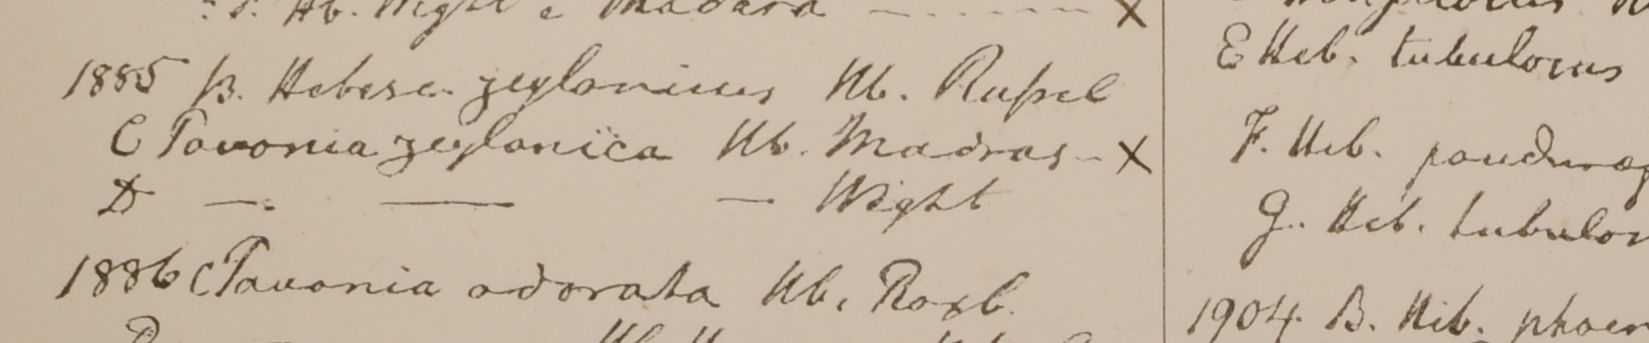 Hb. Wight e Madura ✗
1885 B. Hebisc. zeylanicus Hb. Russel
C Pavonia zeylanica Hb. Madras - ✗
D — — — Wight
1886 C Pavonia odorata Hb. Roxb.
E Heb. tubulosus
F. Heb. panduræf
G. Heb. tubulos
1904. B. Hib. phoen